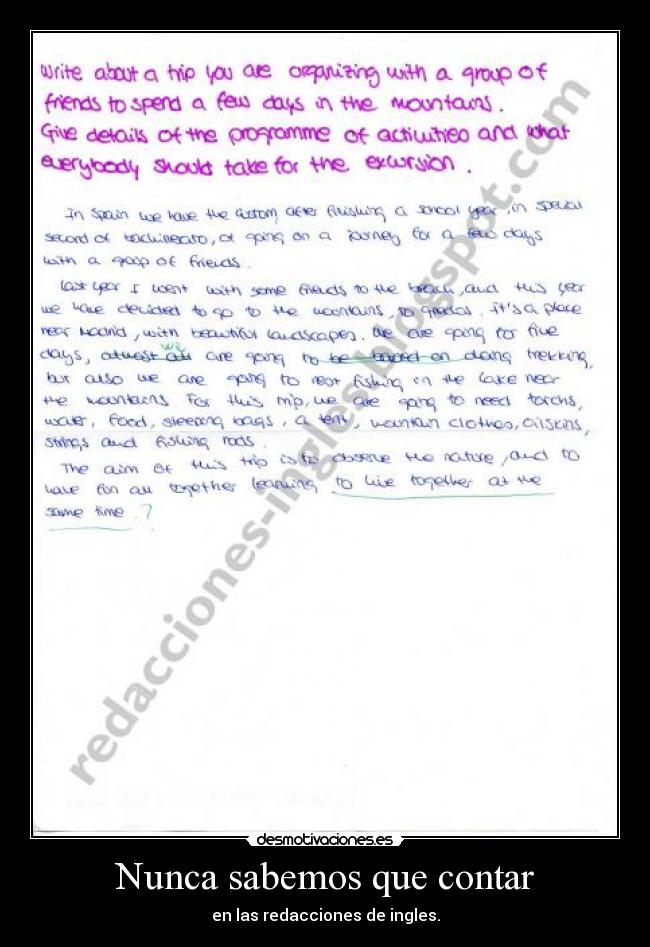 Write about a trip you are organizing with a group of
friends to spend a few days in the mountains.
Give details of the programme of activities and what
everybody should take for the excursion.
In Spain we have the custom, after finishing a school year, in special
second of bachillerato, of going on a journey for a few days
with a group of friends.
Last year I went with some friends to the beach, and this year
we have decided to go to the mountains, to Gredos. It's a place
near Madrid, with beautiful landscapes. We are going for five
we
days, almost all are going to be based on doing trekking,
but also we are going to rest fishing in the lake near
the mountains. For this trip, we are going to need torchs,
water, food, sleeping bags, a tent, mountain clothes, oilskins,
strings and fishing rods.
The aim of this trip is to observe the nature, and to
have fun all together learning to live together at the
same time. ?
redacciones-ingles.blogspot.com
desmotivaciones.es
Nunca sabemos que contar
en las redacciones de ingles.